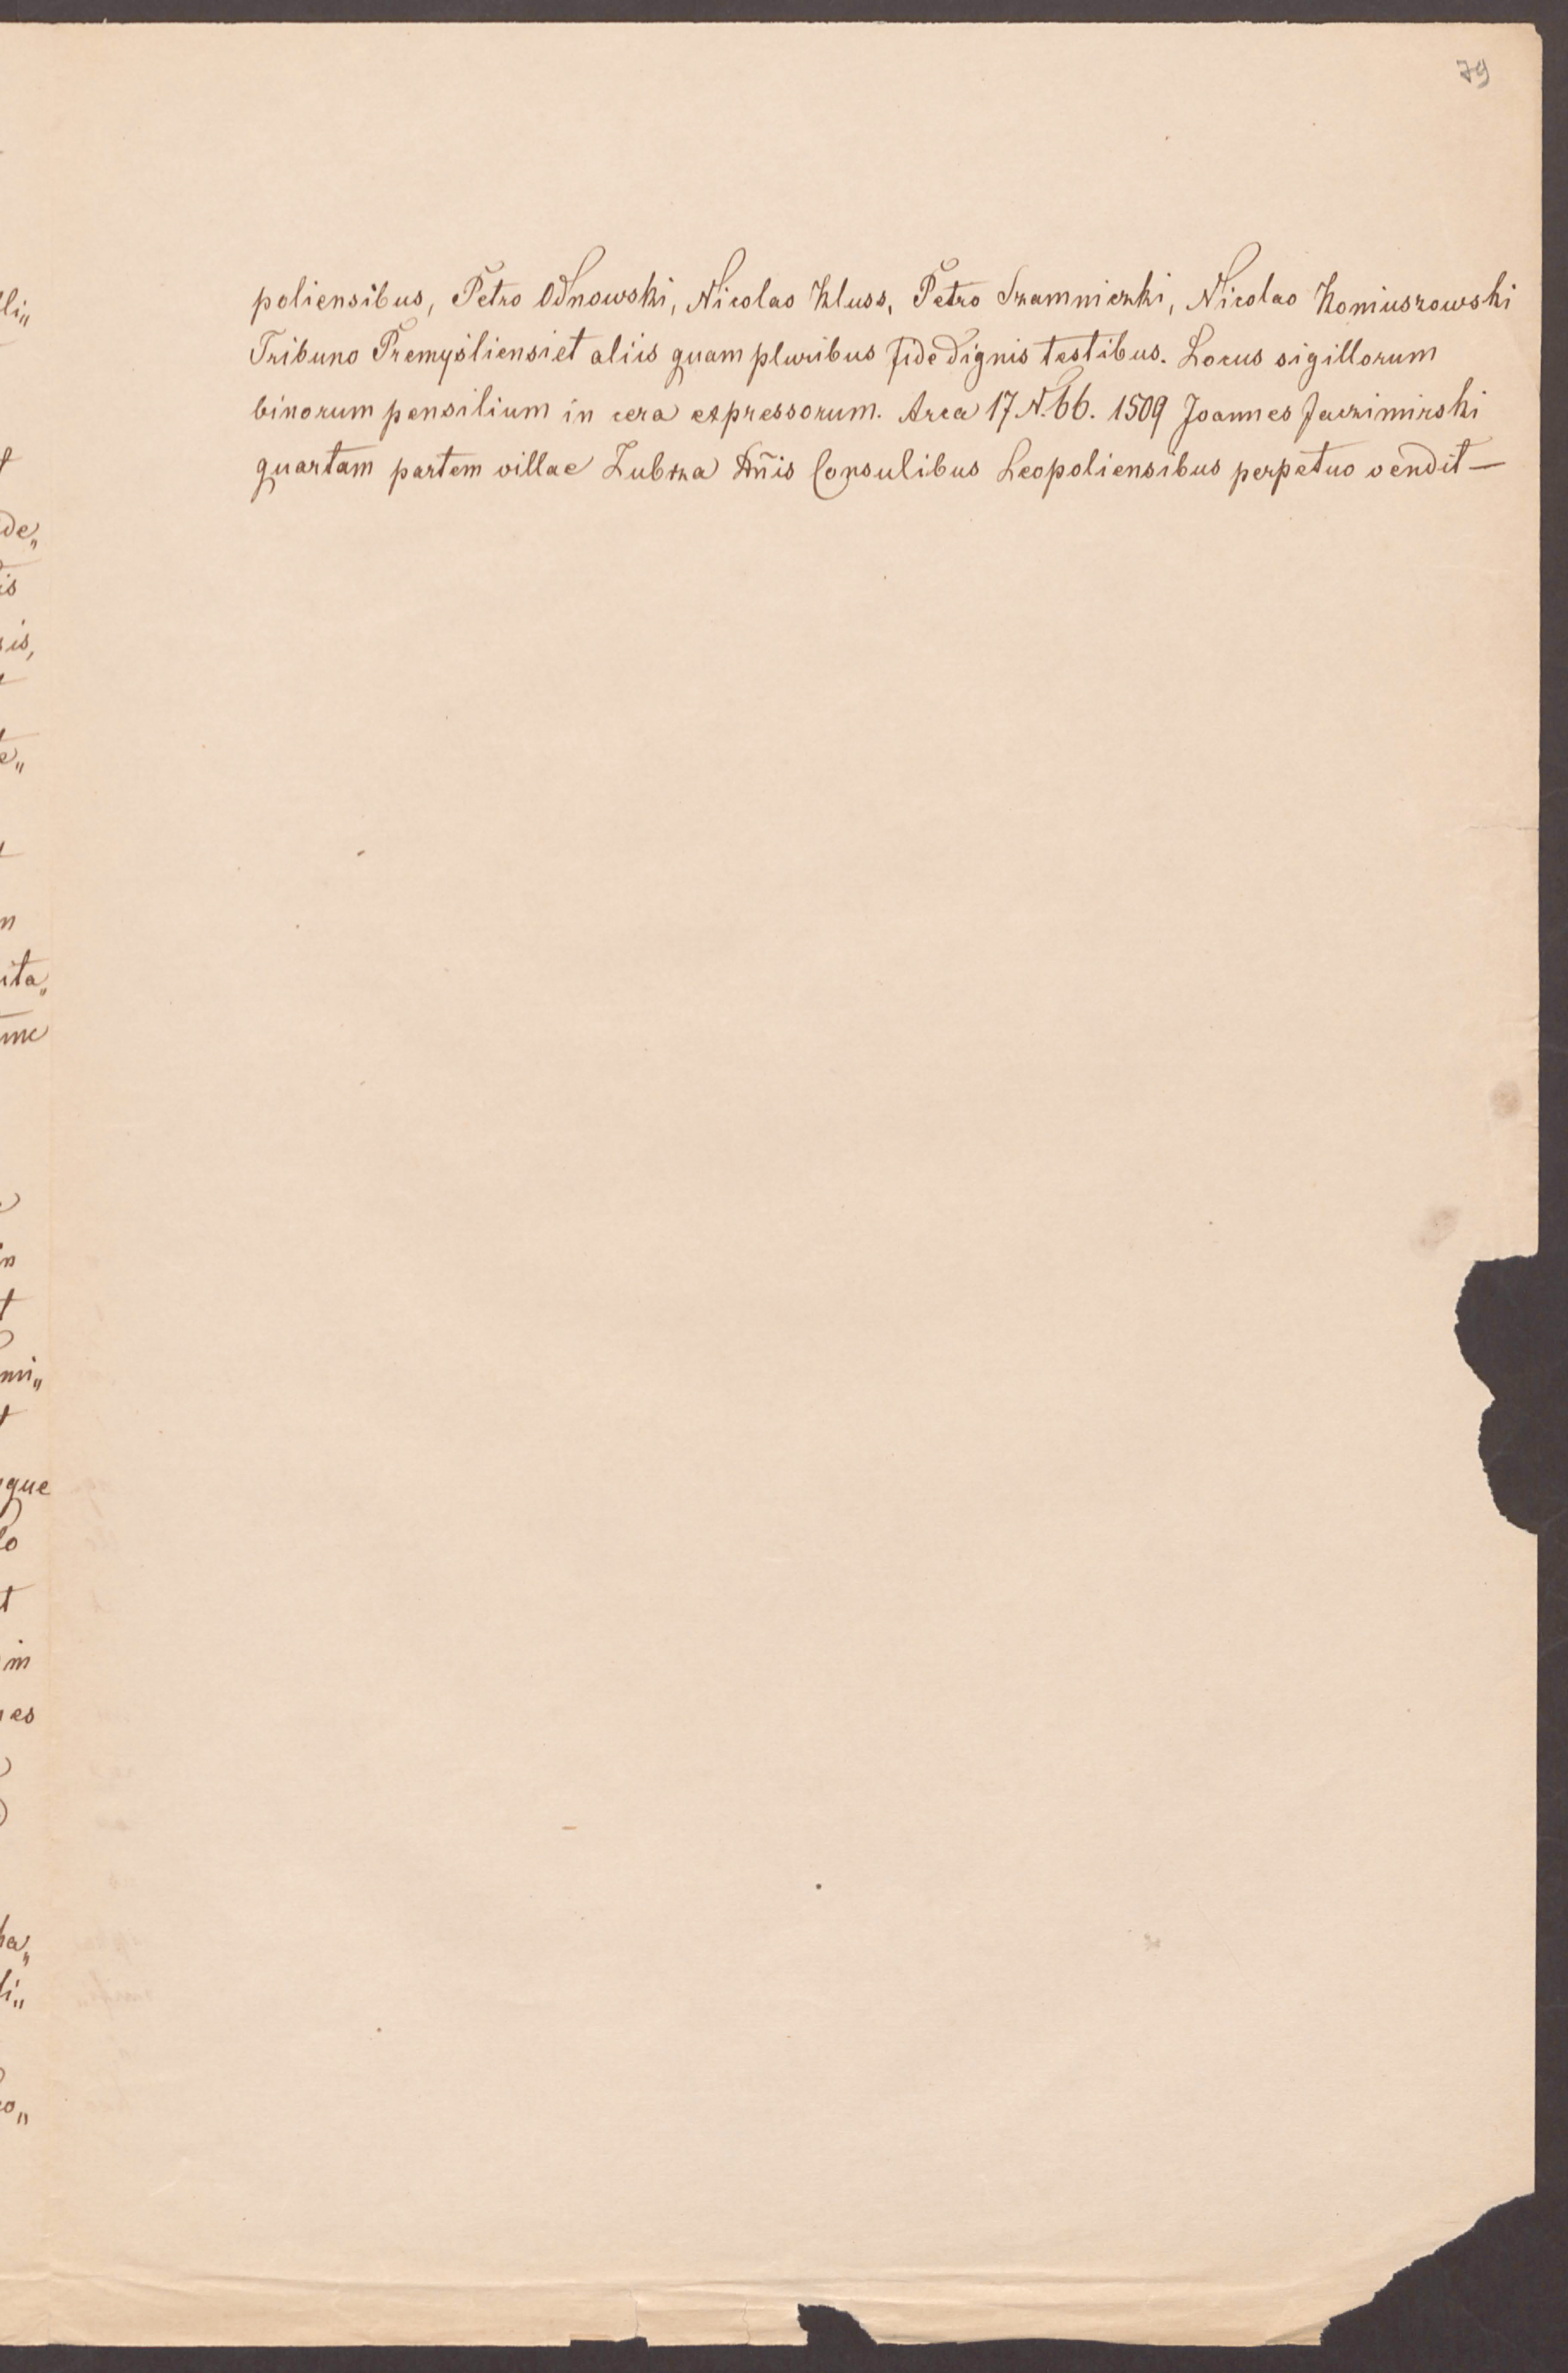 79
poliensibus, Petro Odnowski, Nicolao Kluss, Petro Szamniczki, Nicolao Koniuszowski
Tribuno Premysliensi et aliis quam pluribus fide dignis testibus. Locus sigillorum
binorum pensilium in cera expressorum. Arca 17 N. 66. 1509 Joannes Jaczimirski
quartam partem villae Zubrza Dn̄is Consulibus Leopoliensibus perpetuo vendit —